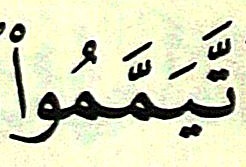 تَّيَمَّمُواْ